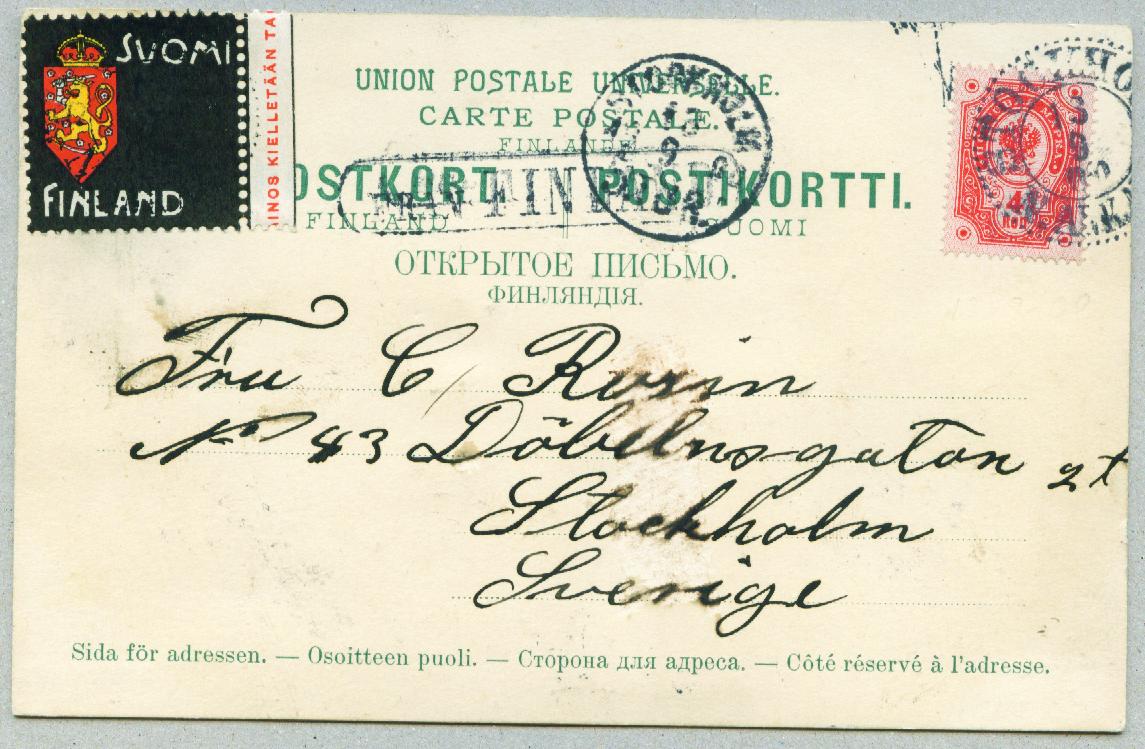 SUOMI
FINLAND
INOS KIELLETÄÄN TA
UNION POSTALE UNIVERSELLE.
CARTE POSTALE.
FINLANDE
OSTKORT POSTIKORTTI.
FINLAND SUOMI
ОТКРЫТОЕ ПИСЬМО.
ФИНЛЯНДІЯ.
FRÅN FINLAND
STOCKHOLM
МАРКА
4
Fru C Rosin
No 43 Döbelnsgatan 2t
Stockholm
Sverige
Sida för adressen. — Osoitteen puoli. — Сторона для адреса. — Côté réservé à l'adresse.